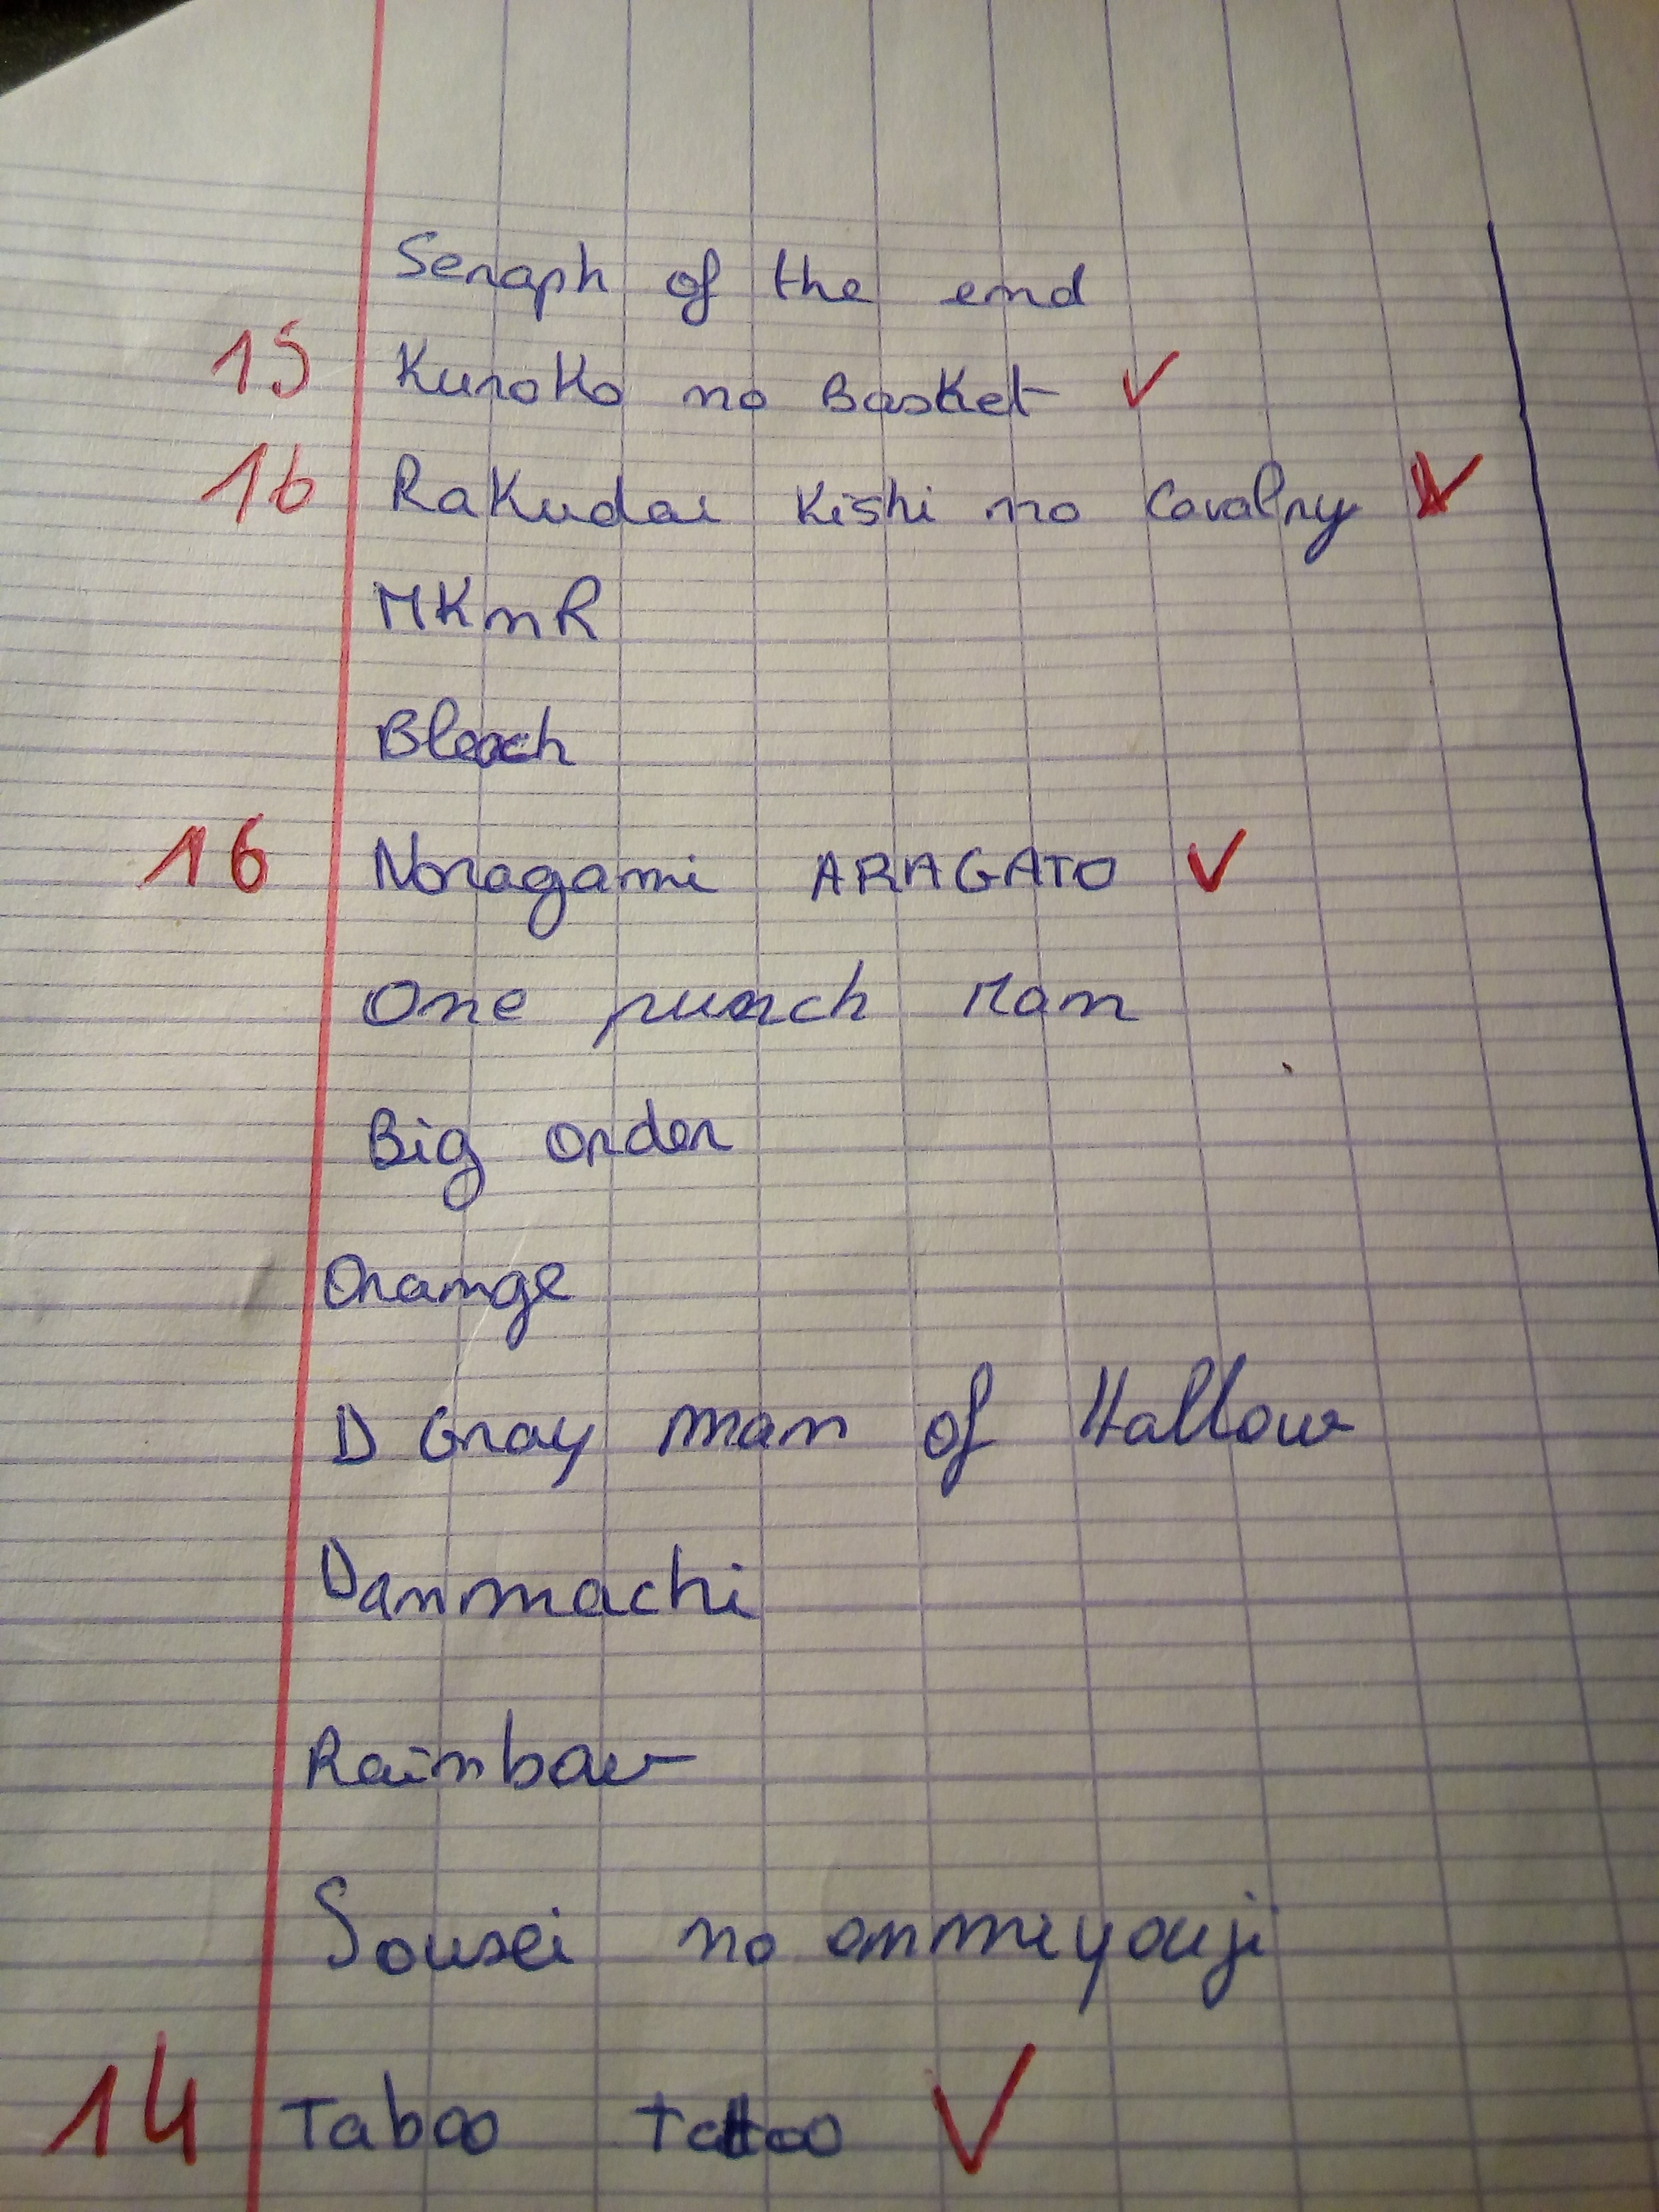 Seraph of the end
15 Kuroko no Basket ✓
16 Rakudai Kishi no Cavalry ✓
MKnR
Bleach
16 Noragami ARAGATO ✓
One punch Man
Big order
Orange
D Gray man of Hallow
Danmachi
Rainbow
Sousei no onmiyouji
14 Taboo Tattoo ✓